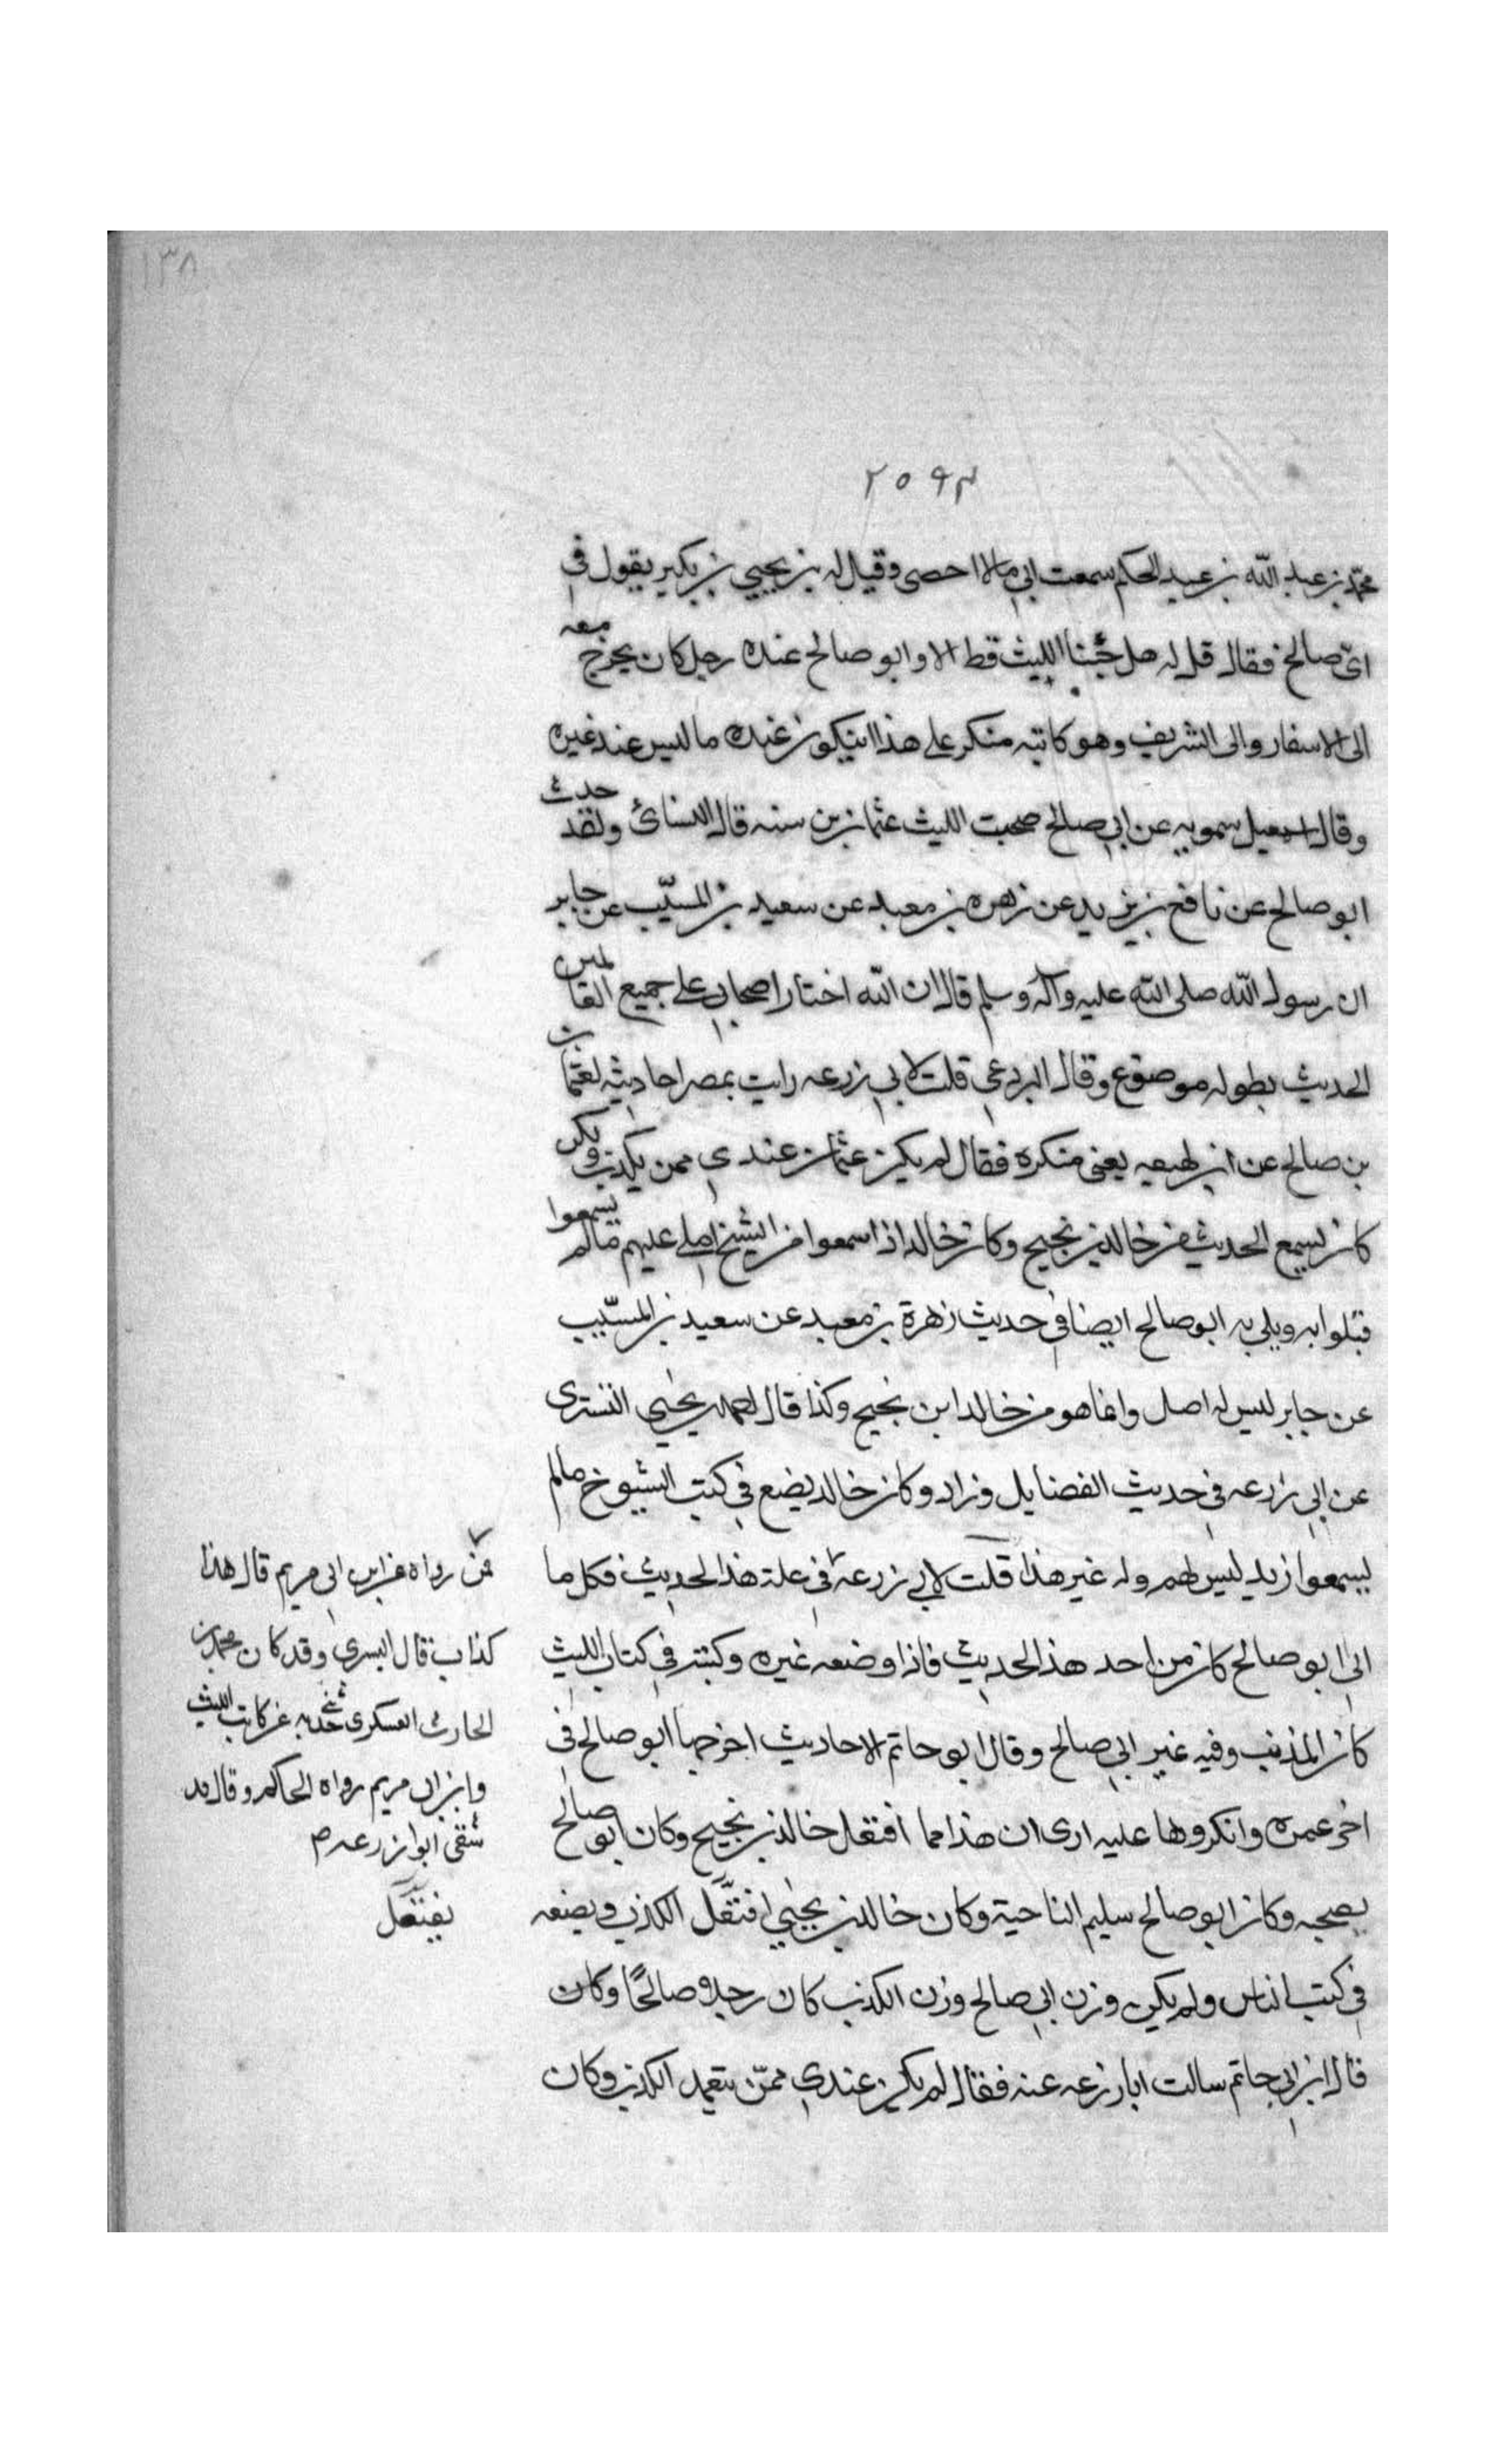 ١٣٨
٢٥٩٣
محمد بن عبد الله بن عبد الحكم سمعت ابي مالا احصى وقيل له بن يحيي بن بكير يقول في
ابي صالح فقال قل له هل جئنا الليث قط الا وابو صالح عنده رجل كان يخرج معه
الى الاسفار والى الشريف وهو كاتبه منكر على هذا ان يكون عنده ما ليس عند غيره
وقال اسمعيل سمويه عن ابي صالح صحبت الليث عشرين سنه قال النسائ ولقد حدث
ابو صالح عن نافع بن يزيد عن زهره بن معبد عن سعيد بن المسيّب عن جابر
ان رسول الله صلى الله عليه وآله وسلم قال ان الله اختار اصحابي على جميع العالمين
الحديث بطوله موضوع وقال البردعي قلت لابي زرعه رايت بمصر احاديثه لعثمان
بن صالح عن ابن لهيعه يعني منكره فقال لم يكن عثمان عندي ممن يكذب ولكن
كان يسمع الحديث من خالد بن نجيح وكان خالد اذا سمعوا من الشيخ املى عليهم مالم يسمعوا
قبلوا به وبلي به ابو صالح ايضا في حديث زهرة بن معبد عن سعيد بن المسيّب
عن جابر ليس له اصل وانما هو من خالد ابن نجيح وكذا قال احمد بن يحيي التسترى
عن ابي زرعه في حديث الفضايل وزاد وكان خالد يضع في كتب الشيوخ مالم
يسمعوا زيد ليس لهم وله غير هذا قلت لابي زرعه في علة هذا الحديث فكل ما
ابي ابو صالح كان من احد هذا الحديث فاذا وضعه غيره وكتبه في كتاب الليث
كان المذنب وفيه غير ابي صالح وقال ابو حاتم الاحاديث اخرجها ابو صالح في
اخر عمره وانكروها عليه ارى ان هذا مما افتعل خالد بن نجيح وكان ابو صالح
يصحبه وكان ابو صالح سليم الناحية وكان خالد بن يحيي افتعل الكذب ويضعه
في كتب الناس ولم يكن وزن ابي صالح وزن الكذب كان رجلا صالحًا وكان
قال ابن ابي حاتم سالت ابا زرعه عنه فقال لم يكن عندي ممّن يتعمد الكذب وكان
فمن رواه عن ابن ابي مريم قال هذا
كذاب قال السري وقد كان محمد بن
الحارث العسكرى حدثني به عن كاتب الليث
وابن ابي مريم رواه الحاكم وقال قد
شفى ابو زرعه م
يفتعل